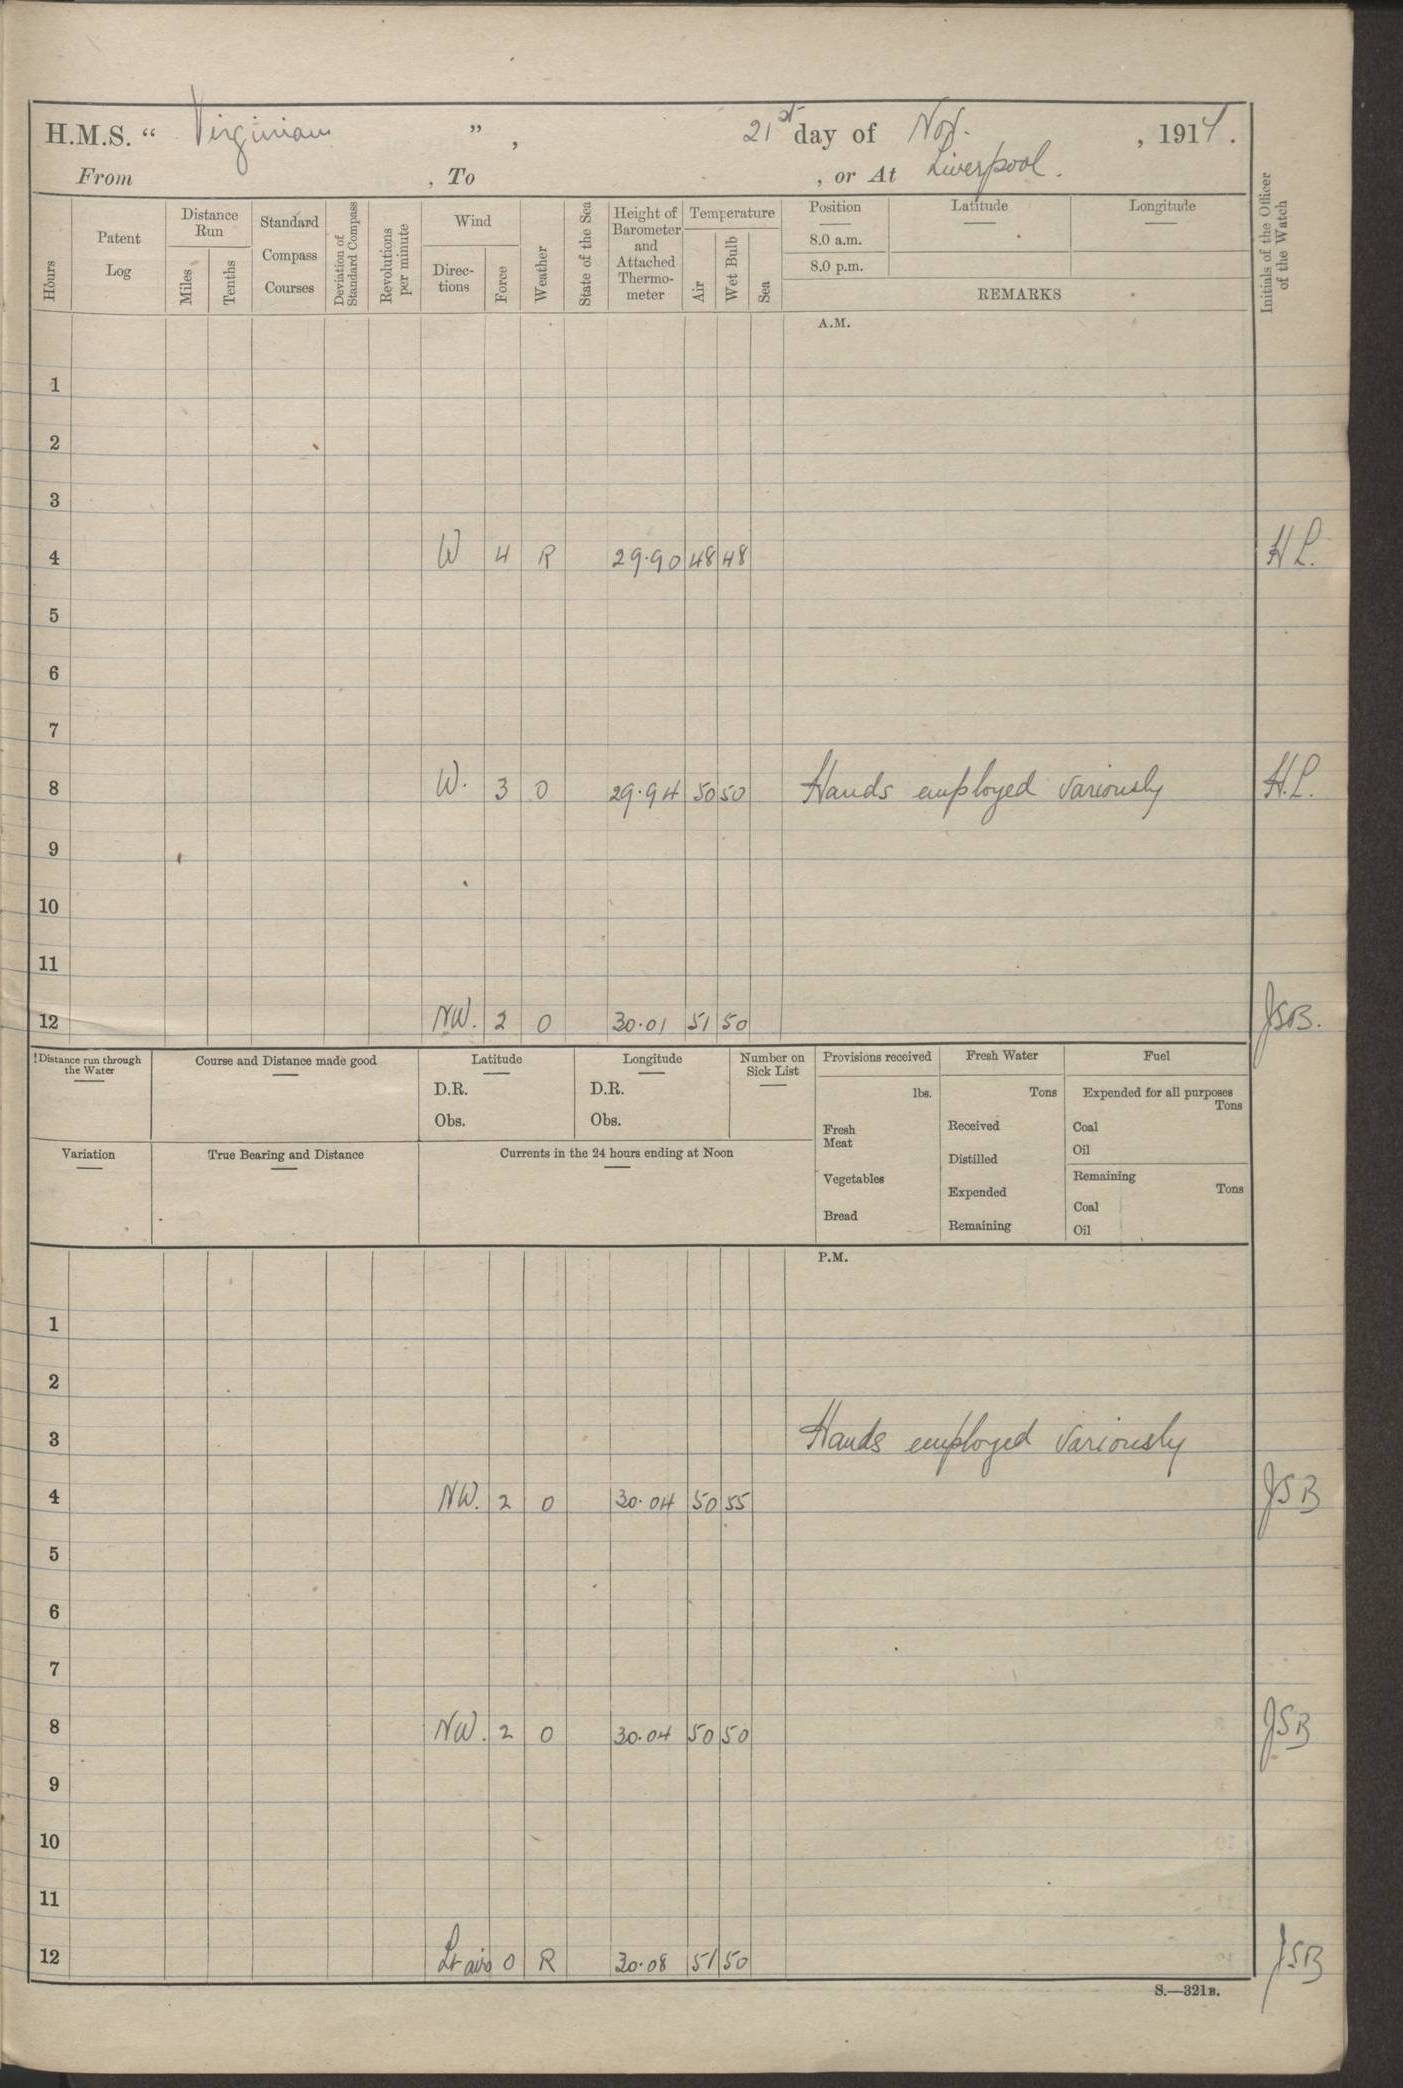 H.M.S. “ Virginian ” , 21st day of Nov. , 1914.
From , To , or At Liverpool.
Hours
Patent Log
Distance Run
Miles
Tenths
Standard Compass Courses
Deviation of Standard Compass
Revolutions per minute
Wind
Direc-tions
Force
Weather
State of the Sea
Height of Barometer and Attached Thermo-meter
Temperature
Air
Wet Bulb
Sea
Position
8.0 a.m.
8.0 p.m.
Latitude
Longitude
REMARKS
Initials of the Officer of the Watch
A.M.
1
2
3
4 W 4 R 29.90 48 48 H L.
5
6
7
8 W. 3 O 29.94 50 50 Hands employed variously H.L.
9
10
11
12 NW. 2 O 30.01 51 50 JSB.
Distance run through the Water
Course and Distance made good
Latitude
D.R.
Obs.
Longitude
D.R.
Obs.
Number on Sick List
Provisions received
lbs.
Fresh Meat
Vegetables
Bread
Fresh Water
Tons
Received
Distilled
Expended
Remaining
Fuel
Expended for all purposes
Tons
Coal
Oil
Remaining
Tons
Coal
Oil
Variation
True Bearing and Distance
Currents in the 24 hours ending at Noon
P.M.
1
2
3 Hands employed variously
4 NW. 2 O 30.04 50 55 JSB
5
6
7
8 NW. 2 O 30.04 50 50 JSB
9
10
11
12 Lt airs 0 R 30.08 51 50 JSB
S.—321B.